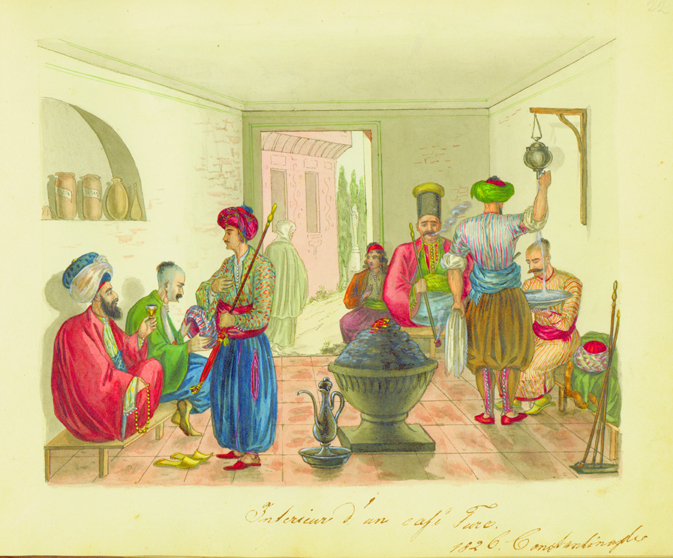 22
Interieur d'un café Turc.
1826. Constantinople